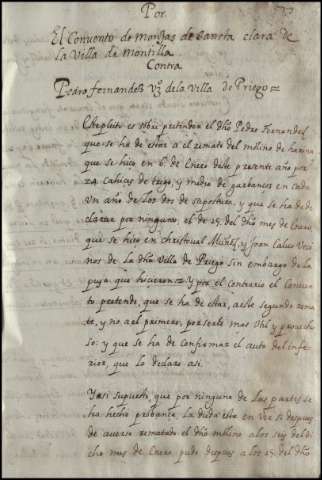 Por
El Conuento de Monjas de Sancta clara de
la Villa de Montilla
Contra
Pedro fernandez Vzº de la Villa de Priego
Este pleito es sobre pretender el dho Pedro Fernandez
que se ha de estar a el remate del molino de harina
que se hiço en 6 de Enero deste presente año por
24 cahices de trigo, y medio de garbanços en cada
Vn año de los dos de su postura, y que se ha de de
clarar por ninguno, el de 25 del dho mes de Enero,
que se hiço en Christoual Muñoz, y Joan Caluo Veci
nos de la dha Villa de Priego sin embargo de la
puja que hicieron Y por el contrario el Conuen
to pretende, que se ha de estar, a este segundo rema
te, y no a el primero, por serle mas Vtil y prouecho
so: y que se ha de Confirmar el auto del infe
rior, que lo declaro asi.
Y asi supuesto, que por ninguna de las partes se
ha hecho probança, la duda esta en Ver si despues
de auerse rematado el dho molino a los seis del di
cho mes de Enero, pudo despues a los 25 del dho